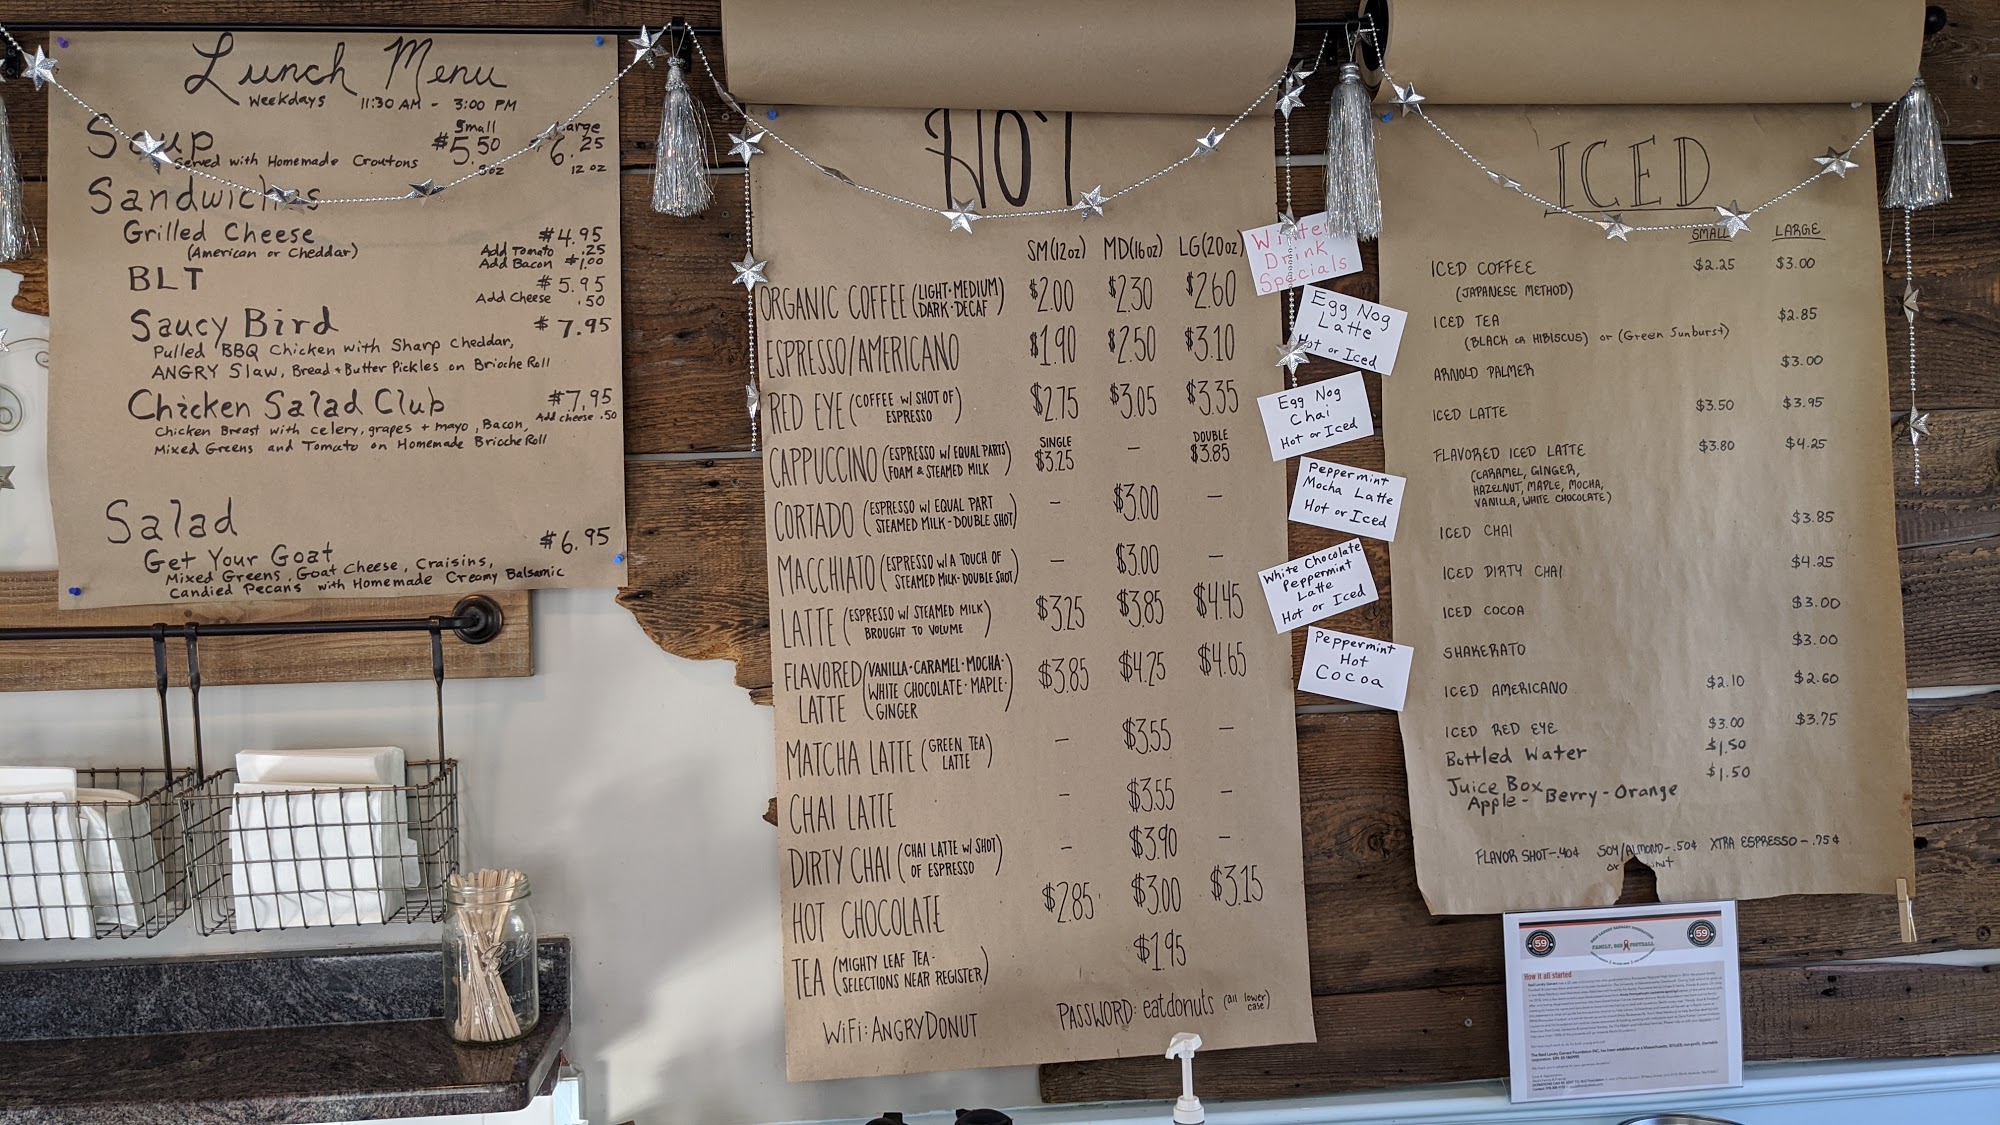 Lunch Menu
Weekdays 11:30 AM - 3:00 PM
Small Large
Soup $5.50 $6.25
Served with Homemade Croutons 8oz 12 oz
Sandwiches
Grilled Cheese $4.95
(American or Cheddar) Add Tomato .25
Add Bacon $1.00
BLT $5.95
Add Cheese .50
Saucy Bird $7.95
Pulled BBQ Chicken with Sharp Cheddar,
ANGRY Slaw, Bread + Butter Pickles on Brioche Roll
Chicken Salad Club $7.95
Add cheese .50
Chicken Breast with celery, grapes + mayo, Bacon,
Mixed Greens and Tomato on Homemade Brioche Roll
Salad
Get Your Goat $6.95
Mixed Greens, Goat Cheese, Craisins,
Candied Pecans with Homemade Creamy Balsamic
HOT
SM(12oz) MD(16oz) LG(20oz)
ORGANIC COFFEE (LIGHT·MEDIUM $2.00 $2.30 $2.60
DARK·DECAF)
ESPRESSO/AMERICANO $1.90 $2.50 $3.10
RED EYE (COFFEE W/ SHOT OF $2.75 $3.05 $3.35
ESPRESSO)
SINGLE DOUBLE
CAPPUCCINO (ESPRESSO W/ EQUAL PARTS $3.25 - $3.85
FOAM & STEAMED MILK)
CORTADO (ESPRESSO W/ EQUAL PART - $3.00 -
STEAMED MILK-DOUBLE SHOT)
MACCHIATO (ESPRESSO W/ A TOUCH OF - $3.00 -
STEAMED MILK-DOUBLE SHOT)
LATTE (ESPRESSO W/ STEAMED MILK $3.25 $3.85 $4.45
BROUGHT TO VOLUME)
FLAVORED (VANILLA·CARAMEL·MOCHA· $3.85 $4.25 $4.65
LATTE WHITE CHOCOLATE·MAPLE·
GINGER)
MATCHA LATTE (GREEN TEA - $3.55 -
LATTE)
CHAI LATTE - $3.55 -
DIRTY CHAI (CHAI LATTE W/ SHOT - $3.90 -
OF ESPRESSO)
HOT CHOCOLATE $2.85 $3.00 $3.15
TEA (MIGHTY LEAF TEA- $1.95
SELECTIONS NEAR REGISTER)
WiFi: ANGRYDONUT PASSWORD: eatdonuts (all lower
case)
Winter
Drink
Specials
Egg Nog
Latte
Hot or Iced
Egg Nog
Chai
Hot or Iced
Peppermint
Mocha Latte
Hot or Iced
White Chocolate
Peppermint
Latte
Hot or Iced
Peppermint
Hot
Cocoa
ICED
SMALL LARGE
ICED COFFEE $2.25 $3.00
(JAPANESE METHOD)
ICED TEA $2.85
(BLACK OR HIBISCUS) or (Green Sunburst)
ARNOLD PALMER $3.00
ICED LATTE $3.50 $3.95
FLAVORED ICED LATTE $3.80 $4.25
(CARAMEL, GINGER,
HAZELNUT, MAPLE, MOCHA,
VANILLA, WHITE CHOCOLATE)
ICED CHAI $3.85
ICED DIRTY CHAI $4.25
ICED COCOA $3.00
SHAKERATO $3.00
ICED AMERICANO $2.10 $2.60
ICED RED EYE $3.00 $3.75
Bottled Water $1.50
Juice Box $1.50
Apple - Berry - Orange
FLAVOR SHOT-.40¢ SOY/ALMOND-.50¢ XTRA ESPRESSO-.75¢
or
59
FAMILY, FOOTBALL
59
How it all started